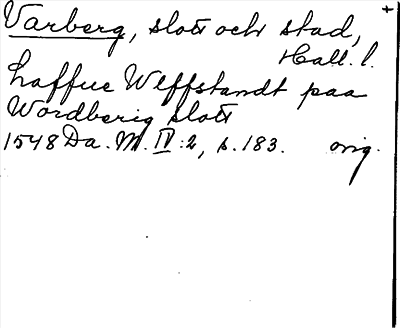 Varberg, slott och stad, +
Hall. l.
haffue Wlffstandt paa
Wordberig slott
1548 Da. M. IV:2, s. 183. orig.